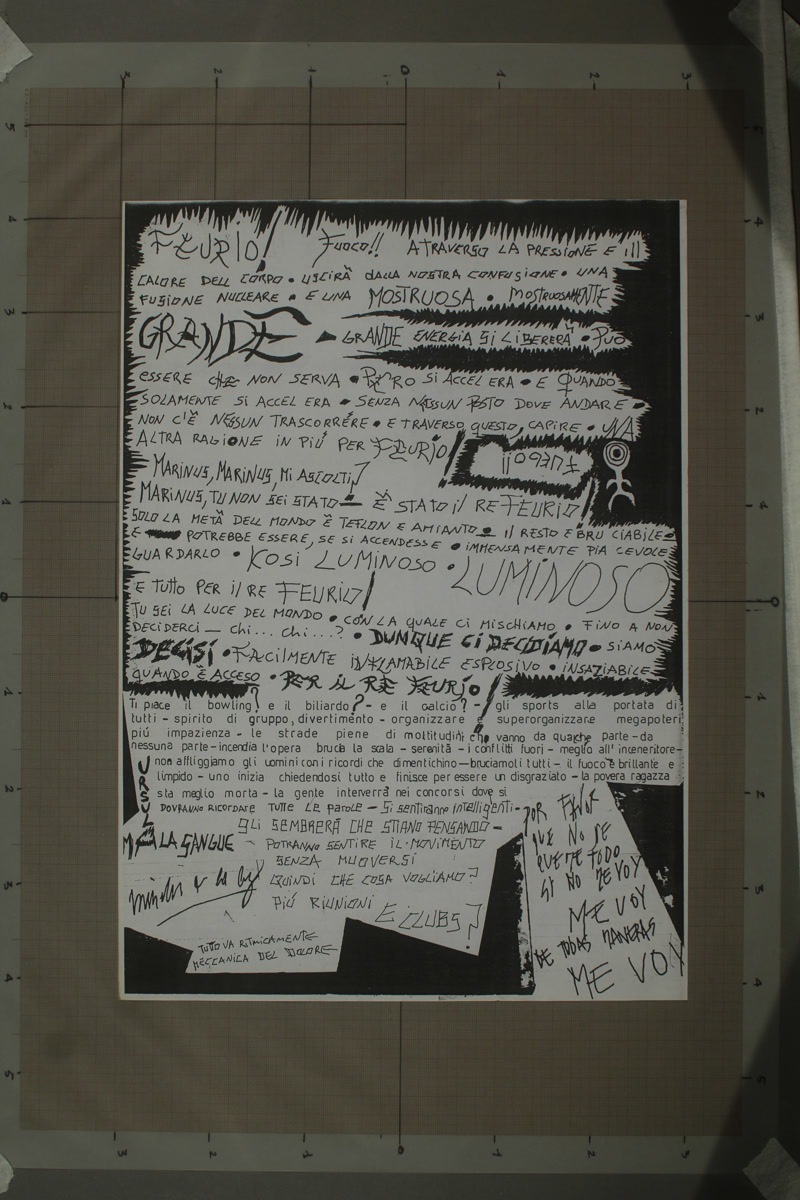 FEURIO! Fuoco!! ATRAVERSO LA PRESSIONE E ill
CALORE DELL CORPO • USCIRÀ DALLA NOSTRA CONFUSIONE • UNA
FUSIONE NUCLEARE • E UNA MOSTRUOSA • MOSTRUOSAMENTE
GRANDE - GRANDE ENERGIA SI LIBERERÀ • PUÒ
ESSERE CHE NON SERVA • PERO SI ACCEL ERA • E QUANDO
SOLAMENTE SI ACCEL ERA • SENZA NESSUN POSTO DOVE ANDARE •
NON C'È NESSUN TRASCORRERE • E TRAVERSO QUESTO, CAPIRE • UNA
ALTRA RAGIONE IN PIÚ PER FEURIO!
MARINUS, MARINUS, MI ASCOLTI?
MARINUS, TU NON SEI STATO — È STATO il RE FEURIO!
SOLO LA METÀ DELL MONDO È TEFLON E AMIANTO • il RESTO È BRU CIABILE •
E POTREBBE ESSERE, SE SI ACCENDESSE • IMMENSAMENTE PIA CEVOLE
GUARDARLO • KOSI LUMINOSO • LUMINOSO
E TUTTO PER il RE FEURIO!
TU SEI LA LUCE DEL MONDO • CON LA QUALE CI MISCHIAMO • FINO A NON
DECIDERCI — Chi... chi...? • DUNQUE CI DECIDIAMO • SIAMO
DECISI • FACILMENTE INFLAMABILE ESPLOSIVO • INSAZIABILE
QUANDO È ACCESO • PER il RE FEURIO!
Ti piace il bowling? e il biliardo? - e il calcio? - gli sports alla portata di
tutti - spirito di gruppo, divertimento - organizzare e superorganizzare megapoteri
piú impazienza - le strade piene di moltitudini che vanno da qualche parte - da
nessuna parte - incendia l'opera brucia la scala - serenità - i conflitti fuori - meglio all' inceneritore -
non affliggiamo gli uomini con i ricordi che dimentichino — bruciamoli tutti - il fuoco è brillante e
limpido - uno inizia chiedendosi tutto e finisce per essere un disgraziato - la povera ragazza
sta meglio morta - la gente interverrà nei concorsi dove si
DOVRANNO RICORDARE TUTTE LE PAROLE - Si sentiranno intelligenti -
GLI SEMBRERÀ CHE STIANO PENSANDO -
POTRANNO SENTIRE IL MOVIMENTO
SENZA MUOVERSI
QUINDI CHE COSA VOGLIAMO?
PIÚ RIUNIONI E CLUBS?
URSULA
MALA SANGUE
TUTTO VA RITMICAMENTE
MECCANICA DEL DOLORE
POR FAVOR
QUE NO SE
QUEME TODO
SI NO ME VOY
ME VOY
DE TODAS MANERAS
ME VOY